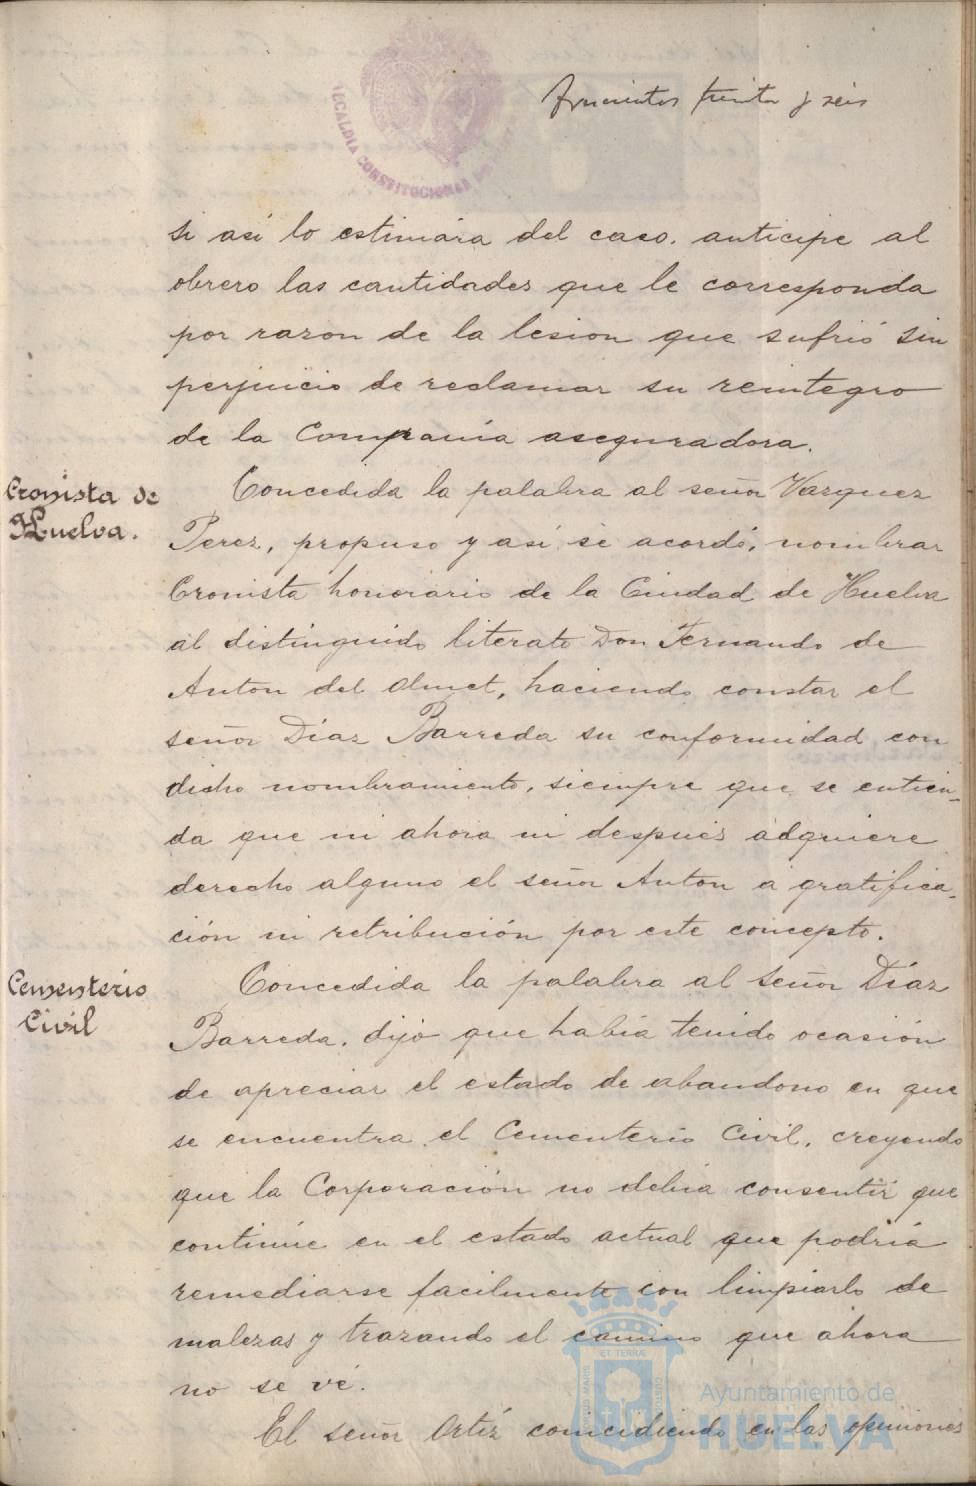 trescientos treinta y seis
ALCALDIA CONSTITUCIONAL DE
si así lo estimára del caso. anticipe al
obrero las cantidades que le corresponda
por razon de la lesion que sufrió sin
perjuicio de reclamar su reintegro
de la Compañia aseguradora.
Cronista de
Huelva.
Concedida la palabra al señor Vazquez
Perez, propuso y así se acordó, nombrar
Cronista honorario de la Ciudad de Huelva
al distinguido literato Don Fernando de
Anton del Olmet, haciendo constar el
señor Díaz Barreda su conformidad con
dicho nombramiento, siempre que se entien-
da que ni ahora ni después adquiere
derecho alguno el señor Anton a gratifica-
ción ni retribución por este concepto.
Cementerio
Civil
Concedida la palabra al señor Díaz
Barreda, dijo que había tenido ocasión
de apreciar el estado de abandono en que
se encuentra el Cementerio Civil, creyendo
que la Corporación no debía consentir que
continúe en el estado actual que podría
remediarse facilmente con limpiarlo de
malezas y trazando el camino que ahora
no se vé.
El señor Ortíz coincidiendo en las opiniones
PORTUS MARIS ET TERRAE CUSTODIA
Ayuntamiento de
HUELVA